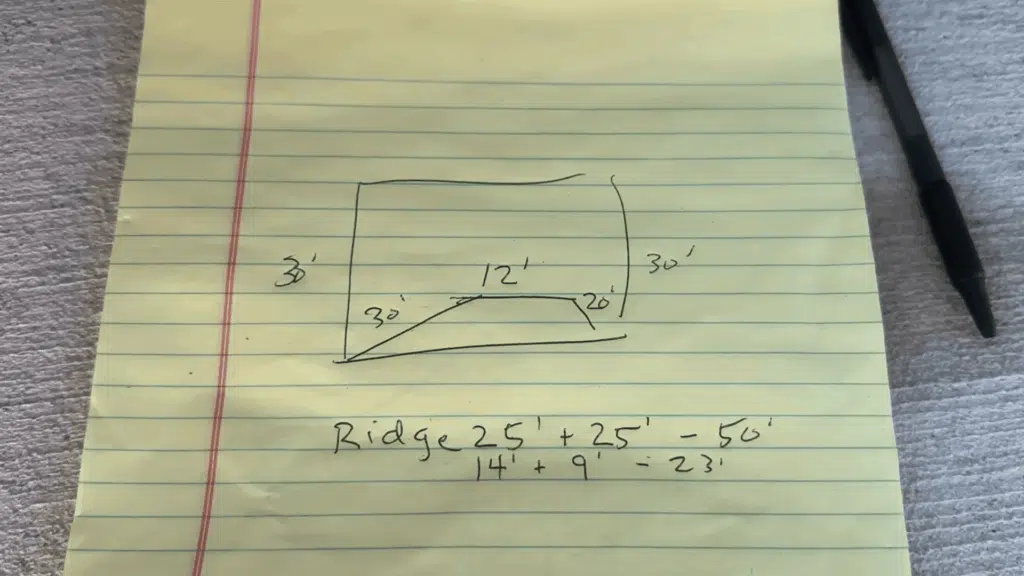 12'
30'
30'
30'
20'
Ridge 25' + 25' - 50'
14' + 9' - 23'